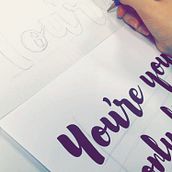 You
You're you
only